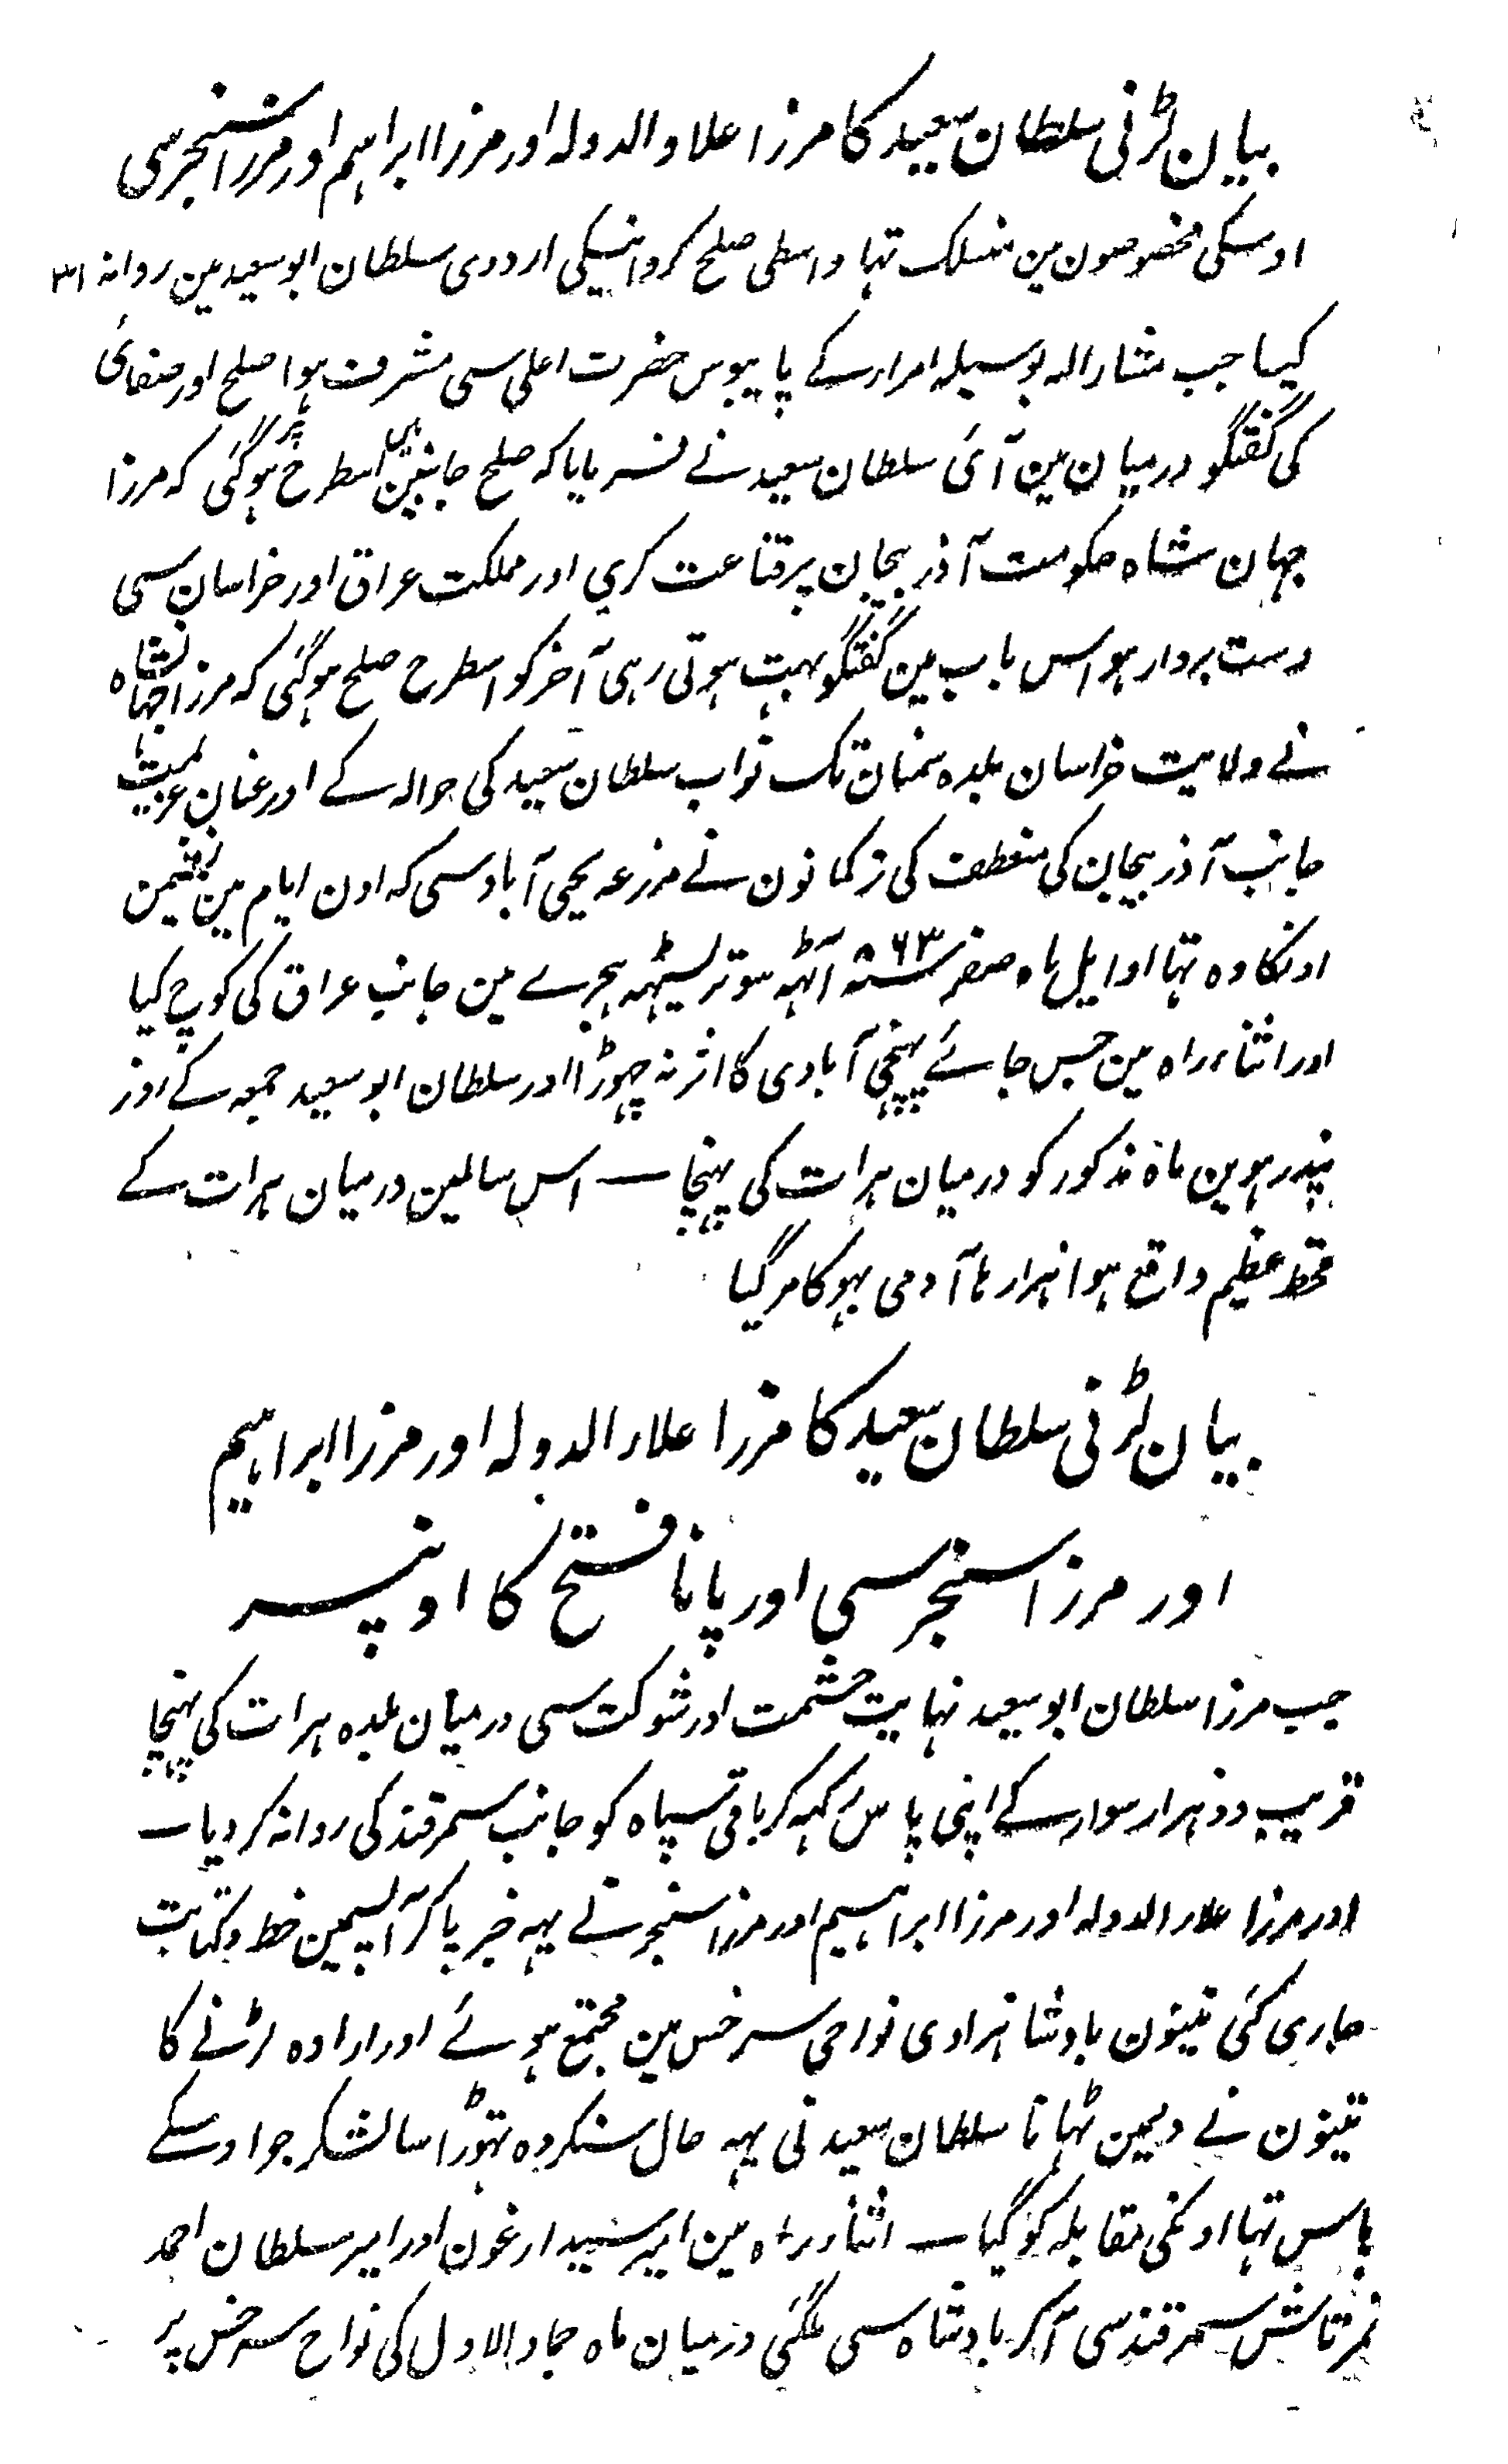 بیان لڑنی سلطان سعید کا مرزا علاو الدولہ اور مرزا ابراہیم اور مرزا سنجر سی
اوسکی مخصوصون مین منسلک تہا واسطی صلح کروانیکی اردوی سلطان ابوسعید مین روانہ ۳۱
کیا جب مشارالہ بوسیلہ امراء کے پایبوس حضرت اعلی سی مشرف ہوا صلح اور صفائی
کی گفتگو درمیان مین آئی سلطان سعید نے فرمایا کہ صلح جانبین اسطرح پر ہوگئی کہ مرزا
جہان شاہ حکومت آذربیجان پر قناعت کری اور مملکت عراق اور خراسان سی
دست بردار ہو اس باب مین گفتگو بہت ہوتی رہی آخر کو اسطرح صلح ہوگئی کہ مرزا جہانشاہ
نے ولایت خراسان بلدہ سمنان تک نواب سلطان سعید کی حوالہ کے اور عنان عزیمت
جانب آذربیجان کی منعطف کی ترکمانون نے مزرعہ یحیی آباد سی کہ اون ایام مین نشیمن
اونکا وہ تہا اوایل ماہ صفر سنہ ۸۶۳ آٹہہ سو تریسٹہہ ہجرے مین جانب عراق کی کوچ کیا
اور اثناء راہ مین جس جائے پہنچی آبادی کا اثر نہ چہوڑا اور سلطان ابوسعید جمعہ کے روز
پندرہوین ماہ مذکور کو درمیان ہرات کی پہنچا ـــ اس سالمین درمیان ہرات کے
قحط عظیم واقع ہوا ہزارہا آدمی بہوکا مرگیا
بیان لڑنی سلطان سعید کا مرزا علاء الدولہ اور مرزا ابراہیم
اور مرزا سنجر سی اور پانا فتح کا اونپر
جب مرزا سلطان ابوسعید نہایت حشمت اور شوکت سی درمیان بلدہ ہرات کی پہنچا
قریب دو ہزار سوار کے اپنی پاس رکہہ کر باقی سپاہ کو جانب سمرقند کی روانہ کردیا ـــ
اور مرزا علاء الدولہ اور مرزا ابراہیم اور مرزا سنجر نے یہہ خبر پاکر آپسمین خط وکتابت
جاری کئی تینون بادشاہزادی نواحی سرخس مین مجتمع ہوئے اور ارادہ لڑنے کا
تینون نے دلمین ٹہانا سلطان سعید نی یہہ حال سنکر وہ تہوڑا سا لشکر جو اوسکے
پاس تہا اونکی مقابلہ کو گیا ـــ اثناء راہ مین امیر سید ارغون اور امیر سلطان احمد
تمرتاش سمرقند سی آکر بادشاہ سی ملگئی درمیان ماہ جماد الاول کی نواح سرخس پر